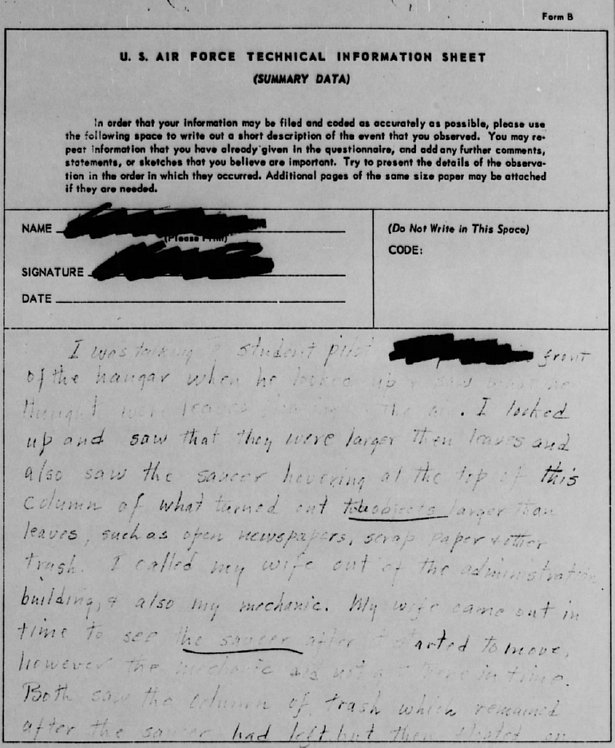 Form B
U. S. AIR FORCE TECHNICAL INFORMATION SHEET
(SUMMARY DATA)
In order that your information may be filed and coded as accurately as possible, please use
the following space to write out a short description of the event that you observed. You may re-
peat information that you have already given in the questionnaire, and add any further comments,
statements, or sketches that you believe are important. Try to present the details of the observa-
tion in the order in which they occurred. Additional pages of the same size paper may be attached
if they are needed.
NAME
(Please Print)
SIGNATURE
DATE
(Do Not Write in This Space)
CODE:
I was talking student pilot front
of the hangar when he looked up & saw what he
thought were leaves the air. I looked
up and saw that they were larger then leaves and
also saw the saucer hovering at the top of this
column of what turned out larger than
leaves, such as open newspapers, scrap paper & other
trash. I called my wife out of the administration
building, & also my mechanic. My wife came out in
time to see the saucer after it started to move,
however the mechanic did not in time.
Both saw the column of trash which remained
after the saucer had left but then floated